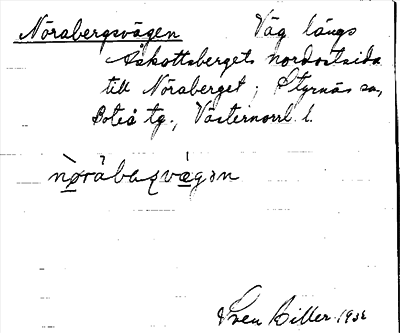 Nörabergsvägen Väg längs
Åskottsbergets nordostsida
till Nöraberget; Styrnäs sn,
Boteå tg., Västernorrl. l.
nø̀rábaqvægən
Sven Biller 193